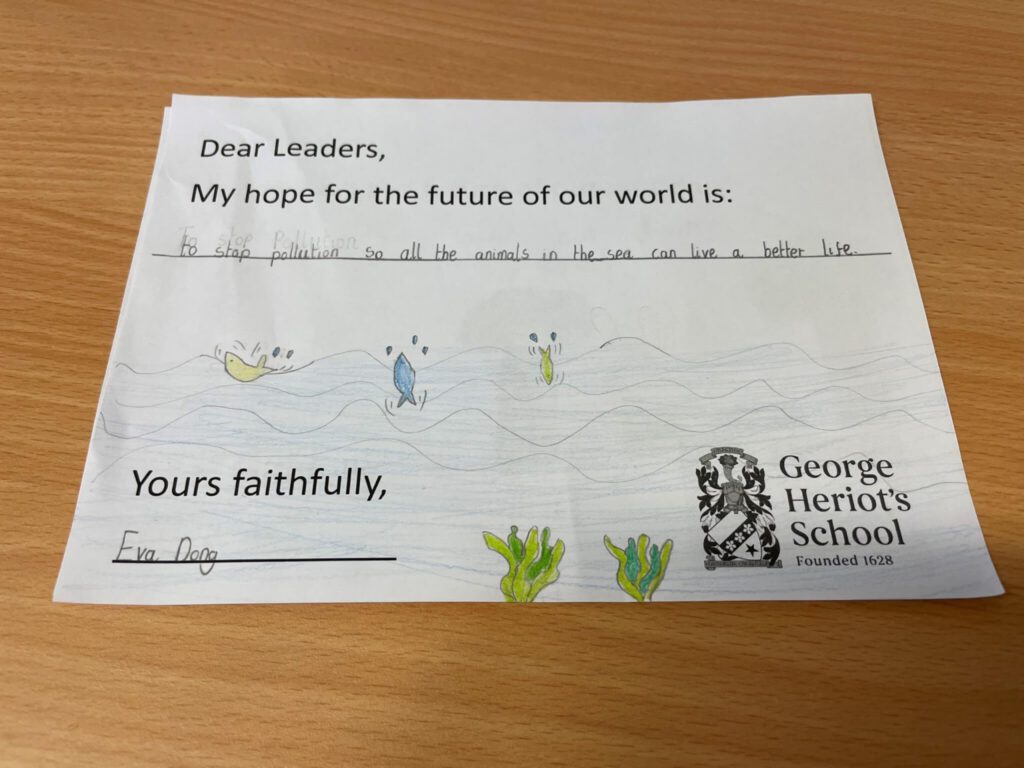 Dear Leaders,
My hope for the future of our world is:
To stop Pollution
to stop pollution so all the animals in the sea can live a better life.
Yours faithfully,
Eva Dong
George
Heriot's
School
Founded 1628